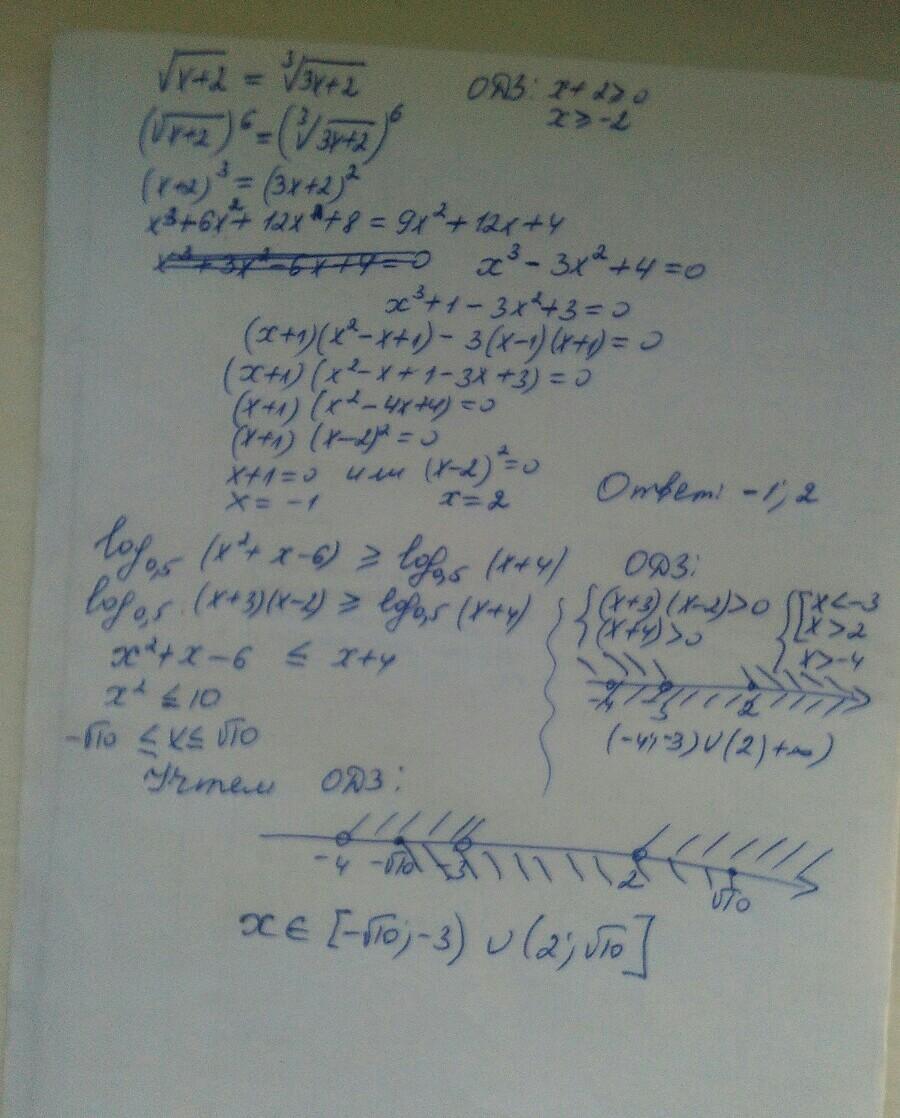 √x+2 = ∛3x+2 ОДЗ: x+2≥0
x≥-2
(√x+2)⁶=(∛3x+2)⁶
(x+2)³=(3x+2)²
x³+6x²+12x+8=9x²+12x+4
x³-3x²+4=0
x³+1-3x²+3=0
(x+1)(x²-x+1)-3(x-1)(x+1)=0
(x+1)(x²-x+1-3x+3)=0
(x+1)(x²-4x+4)=0
(x+1)(x-2)²=0
x+1=0 или (x-2)²=0
x=-1 x=2 Ответ: -1; 2
log₀,₅(x²+x-6)≥log₀,₅(x+4) ОДЗ:
log₀,₅(x+3)(x-2)≥log₀,₅(x+4) {(x+3)(x-2)>0 {[x<-3
(x+4)>0 x>2
x²+x-6≤x+4 x>-4
x²≤10 -4 -3 2
-√10≤x≤√10 (-4;-3)∪(2;+∞)
Учтем ОДЗ:
-4 -√10 -3 2 √10
x∈[-√10;-3)∪(2;√10]